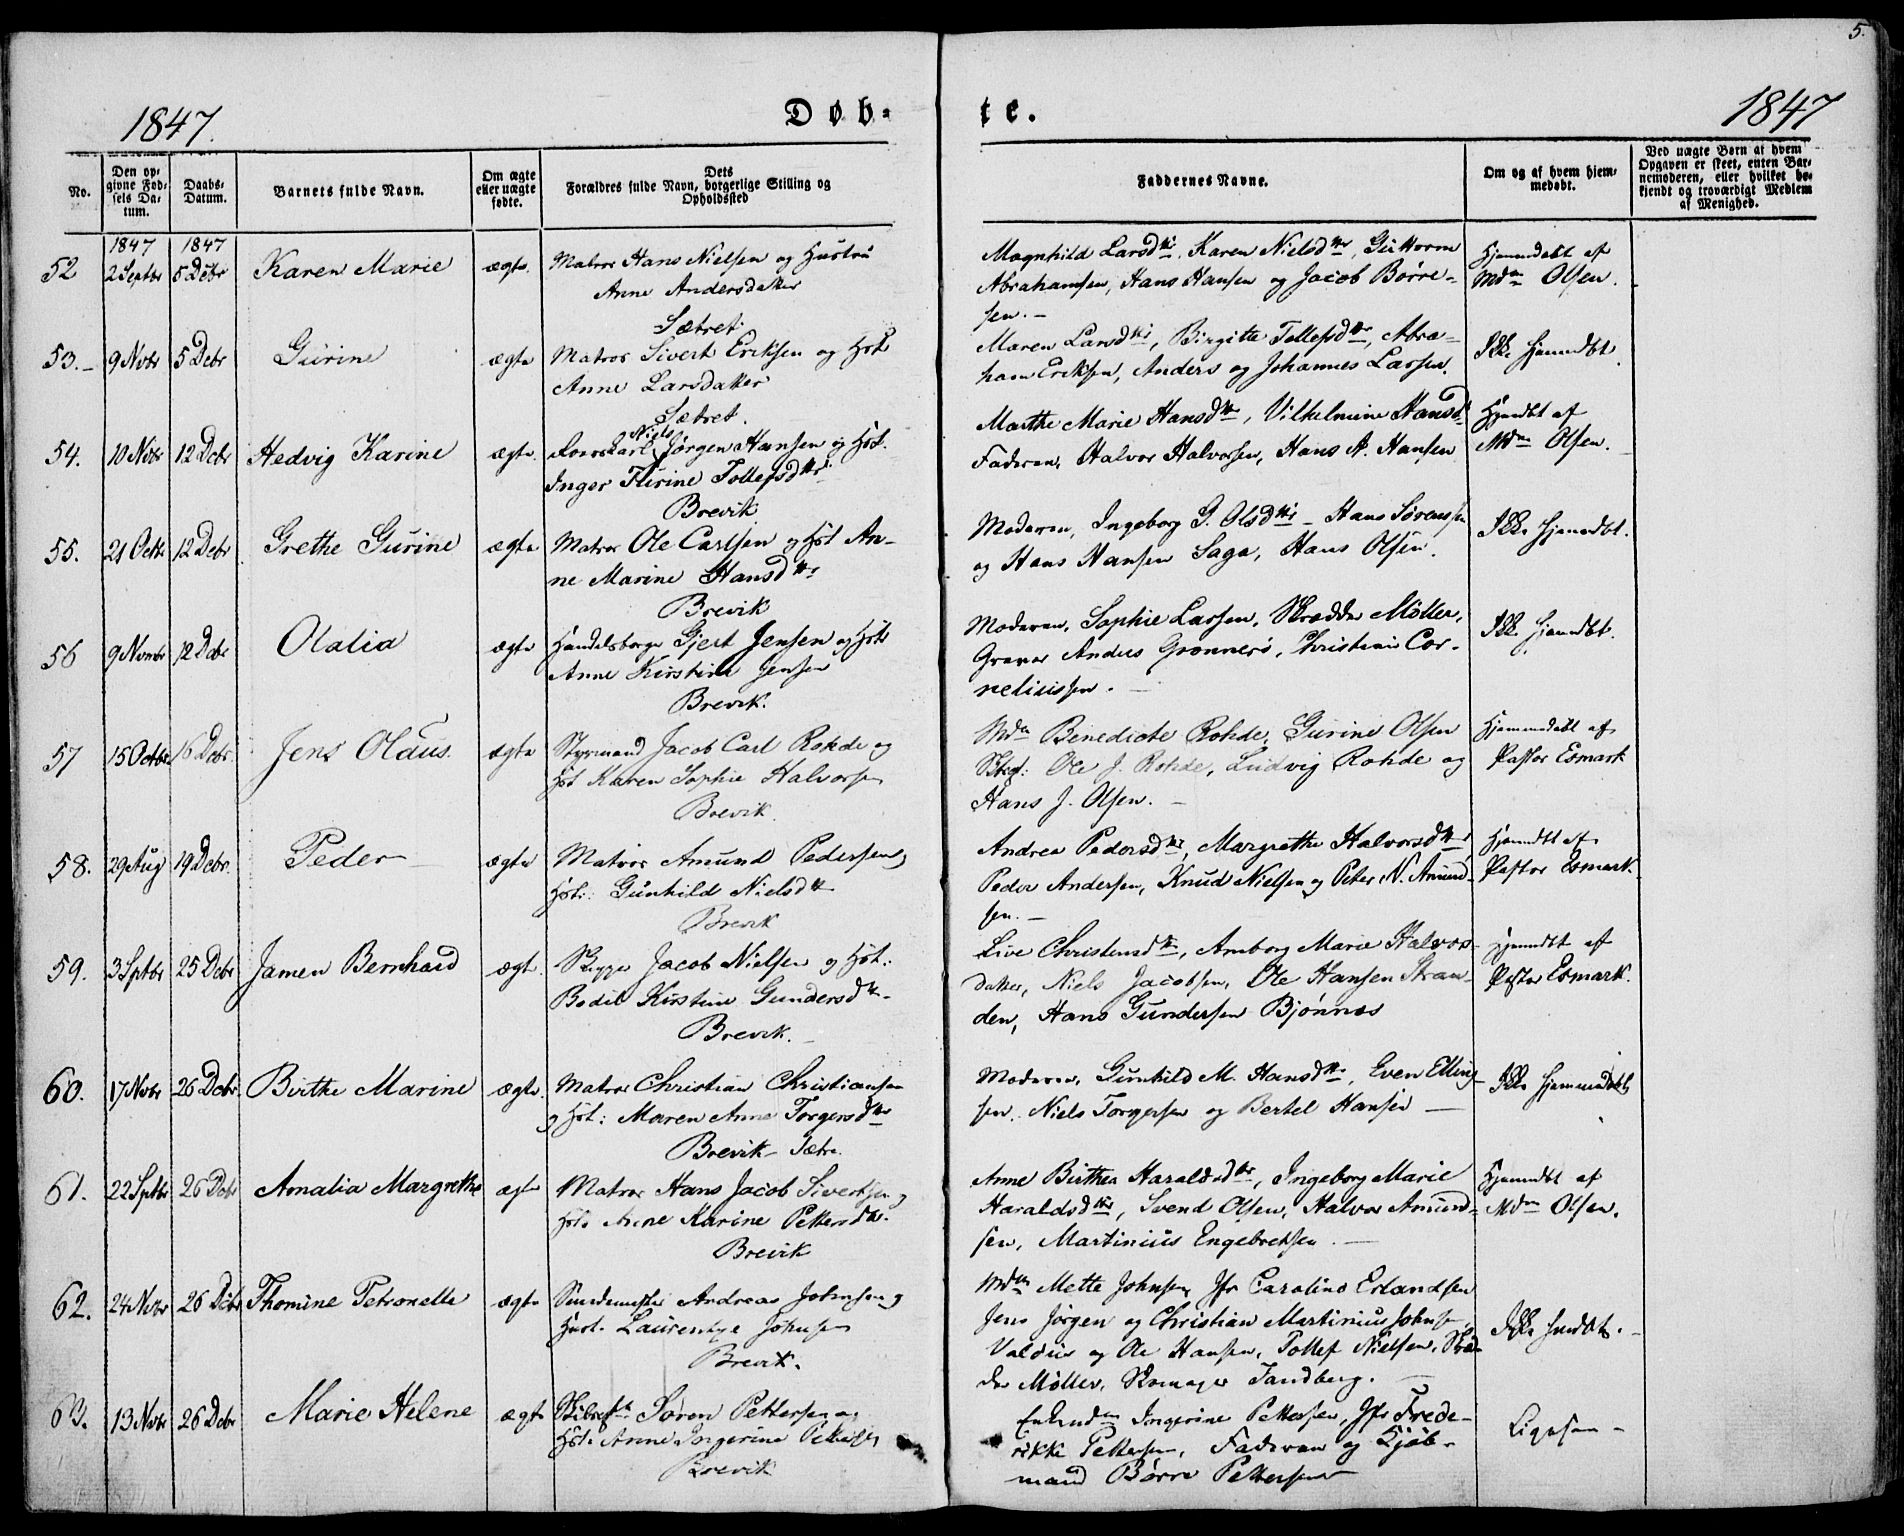 5.
1847. Døb- te. 1847
No. | Den opgivne Fødsels Datum. | Daabs-Datum. | Barnets fulde Navn. | Om ægte eller uægte fødte. | Dets Forældres fulde Navn, borgerlige Stilling og Opholdssted | Faddernes Navne. | Om og af hvem hjemmedøbt. | Ved uægte Børn at hvem Opgaven er skeet, enten Barnemoderen, eller hvilket bekjendt og troværdigt Medlem af Menighed.
1847 1847
52 2 Septbr 5 Debr Karen Marie ægte. Matros Hans Nielsen og Hustru
Anne Andersdaker
Sætret.
Magnhild Larsdtr, Karen Nielsdtr, Guttorm
Abrahamsen, Hans Hansen og Jacob Børre-
sen. -
Hjemmdøbt af
Mdm Olsen.
53. - 9 Novbr 5 Debr Gurine ægte Matros Sivert Eriksen og Hst
Anne Larsdaker
Sætret.
Maren Larsdtr, Birgitte Tollefsdtr, Abra-
ham Eriksen, Anders og Johannes Larsen.
Ikke Hjemmdbt
54. 10 Novbr 12 Debr Hedvig Karine ægte. Loerskarl Niels Jørgen Hansen og Hst.
Inger Turine Tollefsdtr
Brevik
Marthe Marie Hansdtr, Vilhelmine Hansd
Faderen, Halvor Halvorsen, Hans A. Hansen
Hjemdbt af
Mdm Olsen.
55. 21 Octbr 12 Debr Grethe Gurine ægte Matros Ole Carlsen og Hst An-
ne Marine Hansdtr
Brevik
Moderen, Ingeborg G. Olsdtr - Hans Sørensen
og Hans Hansen Saga, Hans Olsen.
Ikke Hjemmdbt.
56 9 Novmbr 12 Debr Olalia ægte Handelsborger Gjert Jensen og Hst
Anne Kirstine Jensen
Brevik.
Moderen, Sophie Larsen, Skrædder Møller,
Graver Anders Grønnerø, Christian Cor-
neliussen. -
Ikke Hjemmdbt.
57 15 Octbr 16 Debr Jens Olaus. ægte Styrmand Jacob Carl Rohde og
Hst Karen Sophie Halvorsen
Brevik.
Mdm Benedicte Rohde, Gurine Olsen
Skbsf: Ole J. Rohde, Ludvig Rohde og
Hans J. Olsen. -
Hjemmedøbt af
Pastor Esmark
58. 29 Aug 19 Debr. Peder ægte Matros Amund Pedersen og
Hst: Gunhild Nielsdtr
Brevik
Andrea Pedersdtr, Margrethe Halvorsdtr
Peder Andersen, Knud Nielsen og Peter N. Amund-
sen. -
Hjemmdt af
Pastor Esmark.
59. 3 Sptbr 25 Debr Jamen Bernhard ægt. Skipper Jacob Nielsen og Hst:
Bodil Kirstine Gundersdtr.
Brevik.
Live Christensdtr, Amborg Marie Halvors-
daker, Niels Jacobsen, Ole Hansen Stran-
den, Hans Gundersen Bjønnes
Hjemmdt af
Pastor Esmark.
60. 17 Novbr 26 Debr. Birthe Marine ægte. Matros Christian Christiansen
og Hst: Maren Anne Torgersdtr
Brevik - Sætre.
Moderen, Gunhild M. Hansdtr, Even Elling-
sen. Niels Torgersen og Bertel Hansen -
Ikke Hjemmedøbt
61. 22 Sptbr 26 Debr Amalia Margrethe ægte Matros Hans Jacob Sivertsen og
Hst: Anne Karine Pettersdtr.
Brevik
Anne Birthea Haraldsdtr, Ingeborg Marie
Haraldsdtr, Svend Olsen, Halvor Amund-
sen, Martinius Engebretsen. -
Hjemmdt af
Mdm Olsen.
62. 24 Novbr 26 Debr Thomine Petronelle ægte Andreas Johnsen og
Hust. Laurentze Johnsen
Brevik.
Mdm Mette Johnsen, Jfr Caroline Erlandsen
Jens Jørgen og Christian Martinius Johnsen,
og Ole Hansen, Tollef Nielsen, Skræ-
der Møller, Skomager Sandberg. -
Ikke hmdbt. -
63. 13 Novbr 26 Debr Marie Helene ægte Skibsf. Søren Pettersen og
Hst. Anne Ingerine Pettersen
Brevik
Enkemdm Ingerine Pettersen, Jfr Frede-
rikke Pettersen, Faderen og Kjøb-
mand Børre Pettersen
Ligesaa -